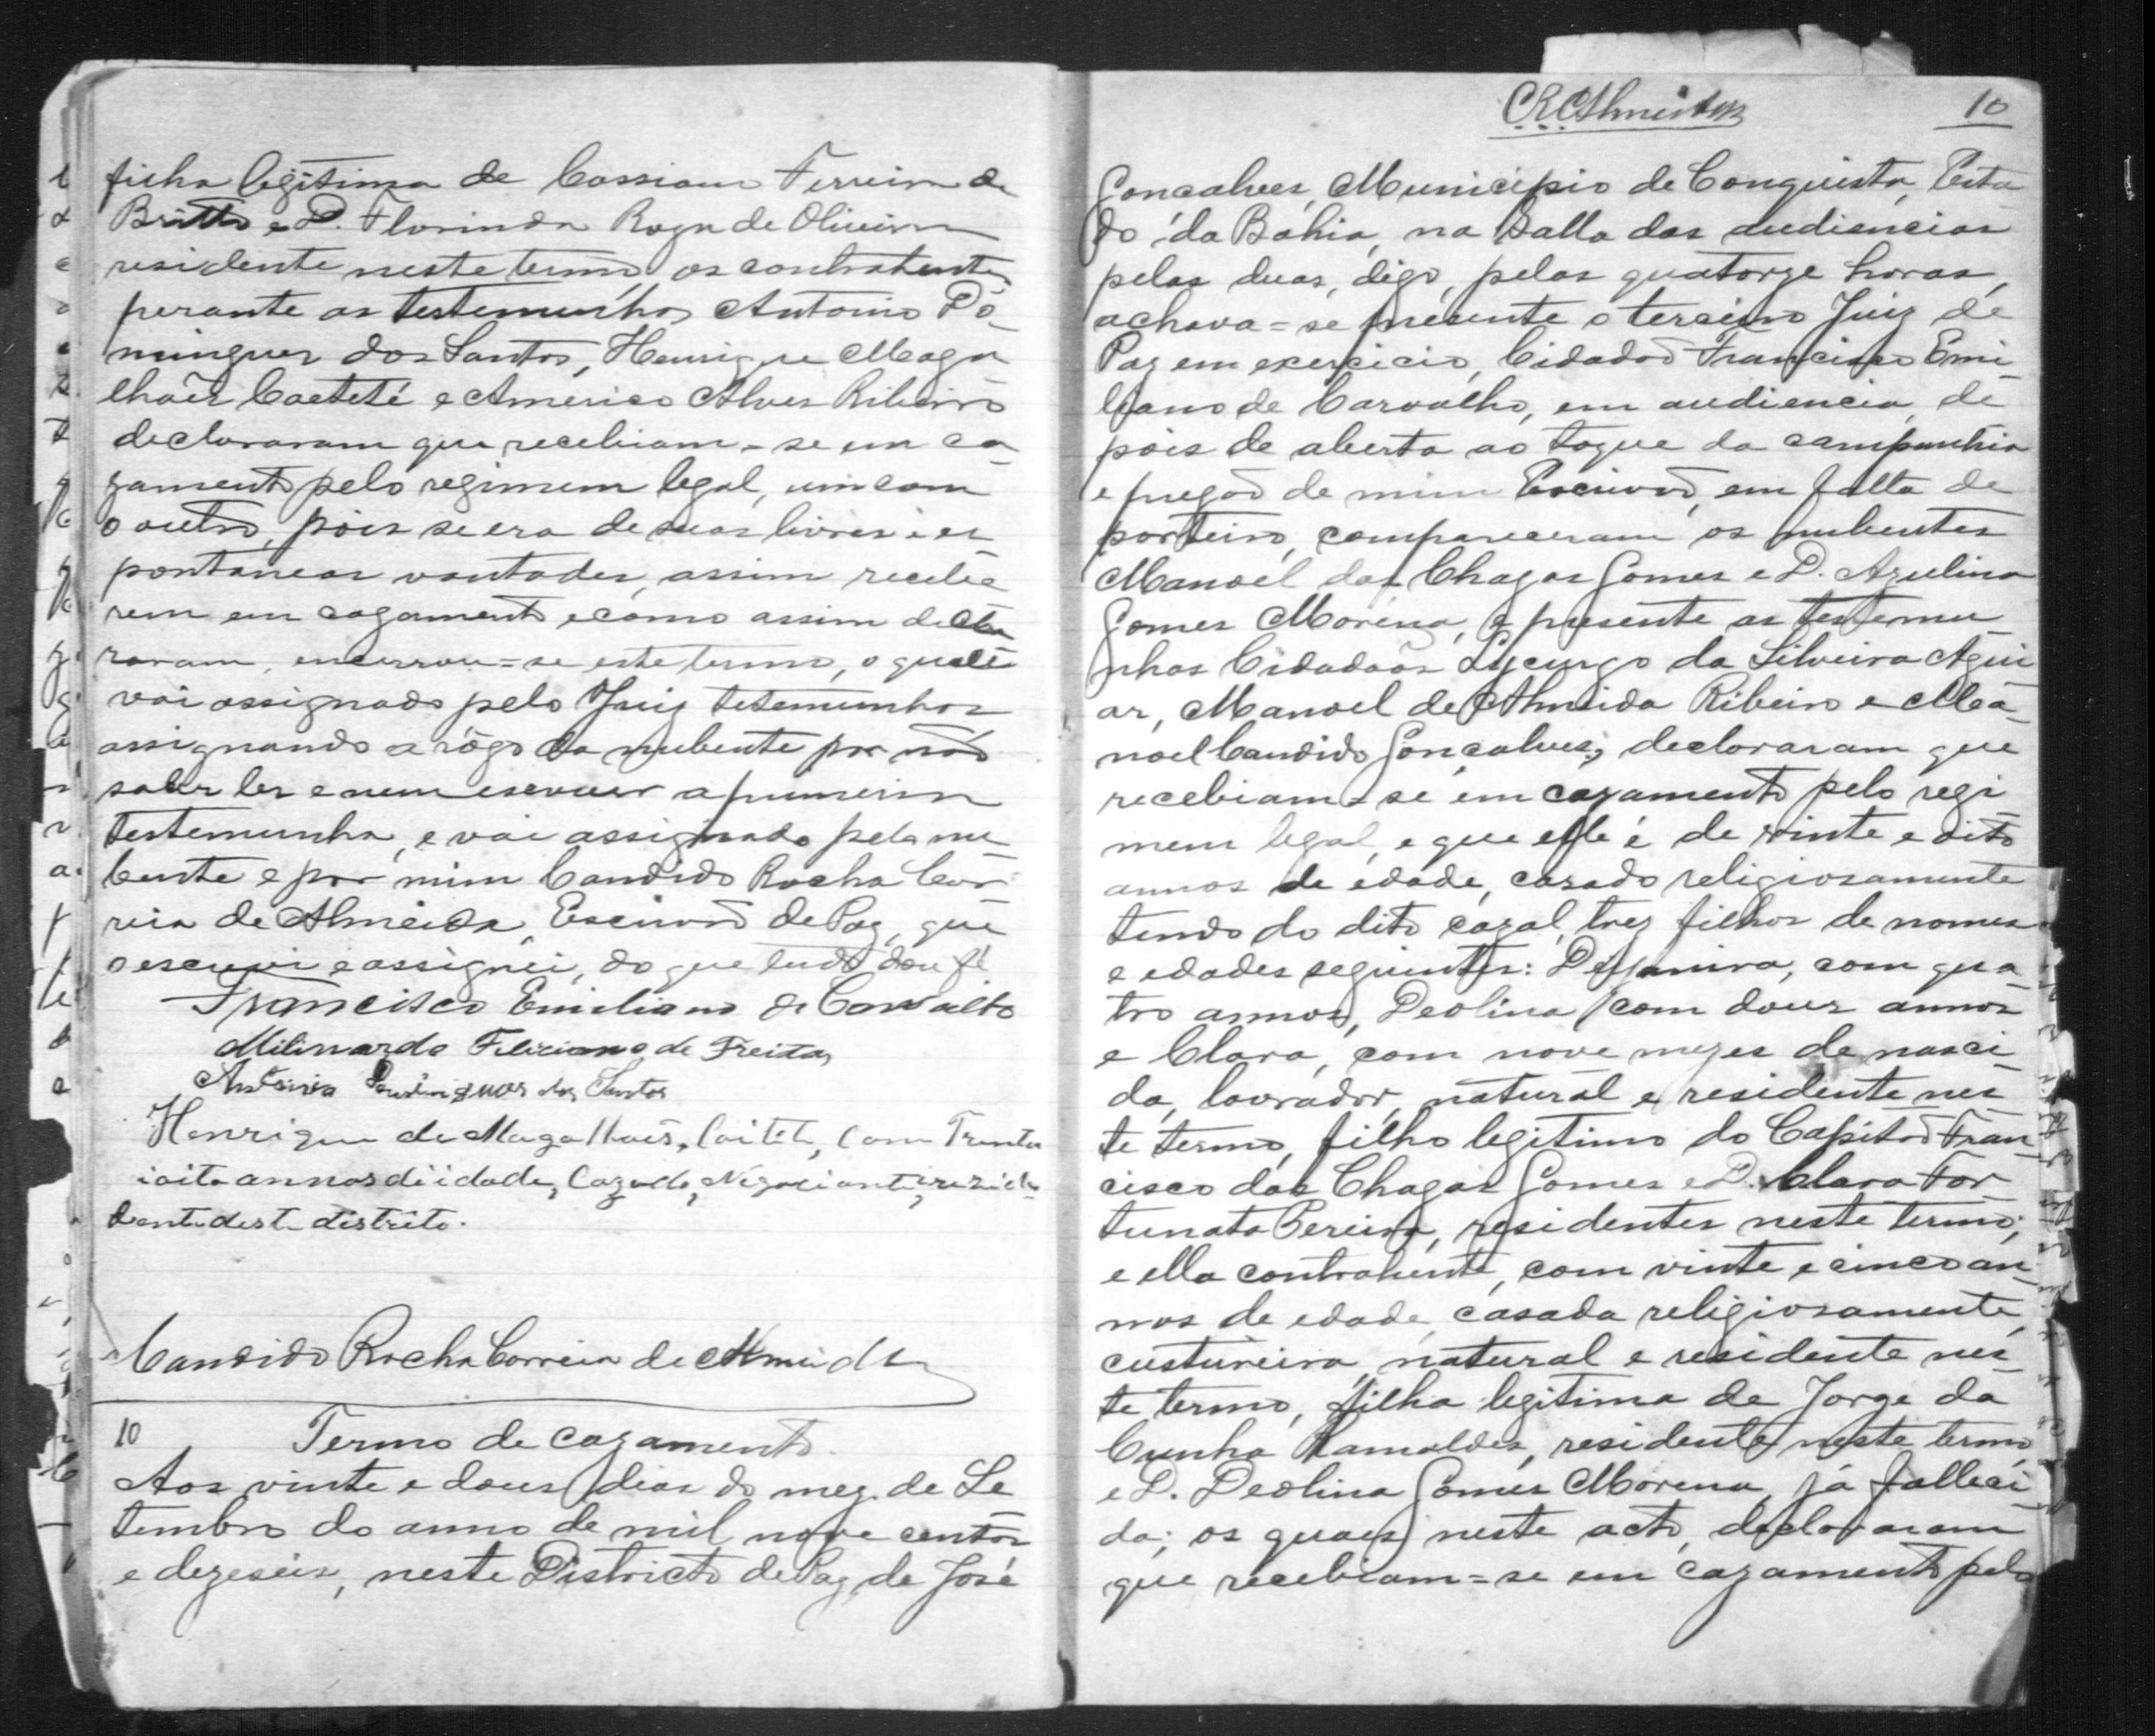 filha legitima de Cassiano Ferreira de
Britto e D. Florinda Roza de Oliveira
residente neste termo, os contrahentes
perante as testemunhas Antonio Do-
mingues dos Santos, Henrique Maga
lhães Caeteté e Americo Alves Ribeiro
declararam que recebiam-se em ca
zamento pelo regimem legal, um com
o outro, pois se era de suas livres e es
pontaneas vontades, assim recebe
rem em cazamento e como assim decla
raram, encerrou-se este termo, o qual é
vai assignado pelo Juiz testemunhas
assignando a rôgo da nubente por não
saber ler e nem escrever a primeira
testemunha, e vai assignado pelo nu
bente e por mim Candido Rocha Cor
reia de Almeida, Escrivão de Paz, que
o escrevi e assignei, do que tudo dou fé
Francisco Emiliano de Carvalho
Feliciano de Freitas
Antonio Domingues dos Santos
Henrique de Magalhaes, Caitete, Com Trinta
ioito annos diidade, Cazado, Negociante, rezi
dente deste distrito.
Candido Rocha Correia de Almeida
10 Termo de cazamento.
Aos vinte e dous dias do mez de Se
tembro do anno de mil nove centos
e dezeseis, neste Districto de Paz, de José
CRCAlmeida 10
Gonçalves, Municipio de Conquista, Esta
do da Bahia, na Salla das audiencias
pelas duas, digo, pelas quatorze horas,
achava=se presente o terceiro Juiz de
Paz em exercicio, Cidadão Francisco Emi
liano de Carvalho, em audiencia, de
pois de aberta ao toque da campanhia
e pregão de mim Escrivão, em falta de
porteiro, compareceram os nubentes
Manoel das Chagas Gomes e D. Azulina
Gomes Morena, e presente as testemu
nhas Cidadãos Lycurgo da Silveira Agui
ar, Manoel de Almeida Ribeiro e Ma-
noel Candido Gonçalves; declararam que
recebiam-se em cazamento pelo regi
mem legal, e que elle é de vinte e oito
annos de edade, casado religiosamente
tendo do dito cazal, trez filhos de nomes
e edades seguintes: Dejanira, com qua
tro annos, Deolina com dous annos
e Clara, com nove mezes de nasci
da, lavrador, natural e residente nes
te termo, filho legitimo do Capitão Fran
cisco das Chagas Gomes e D. Clara For
tunata Pereira, residentes neste termo;
e ella contrahente, com vinte e cinco an
nos de edade, casada religiosamente,
custureira, natural e residente nes
te termo, filha legitima de Jorge da
Cunha Ramaldes, residente neste termo
e D. Deolina Gomes Morena, já falleci
da; os quaes neste acto, declararam
que recebiam=se em cazamento pelo